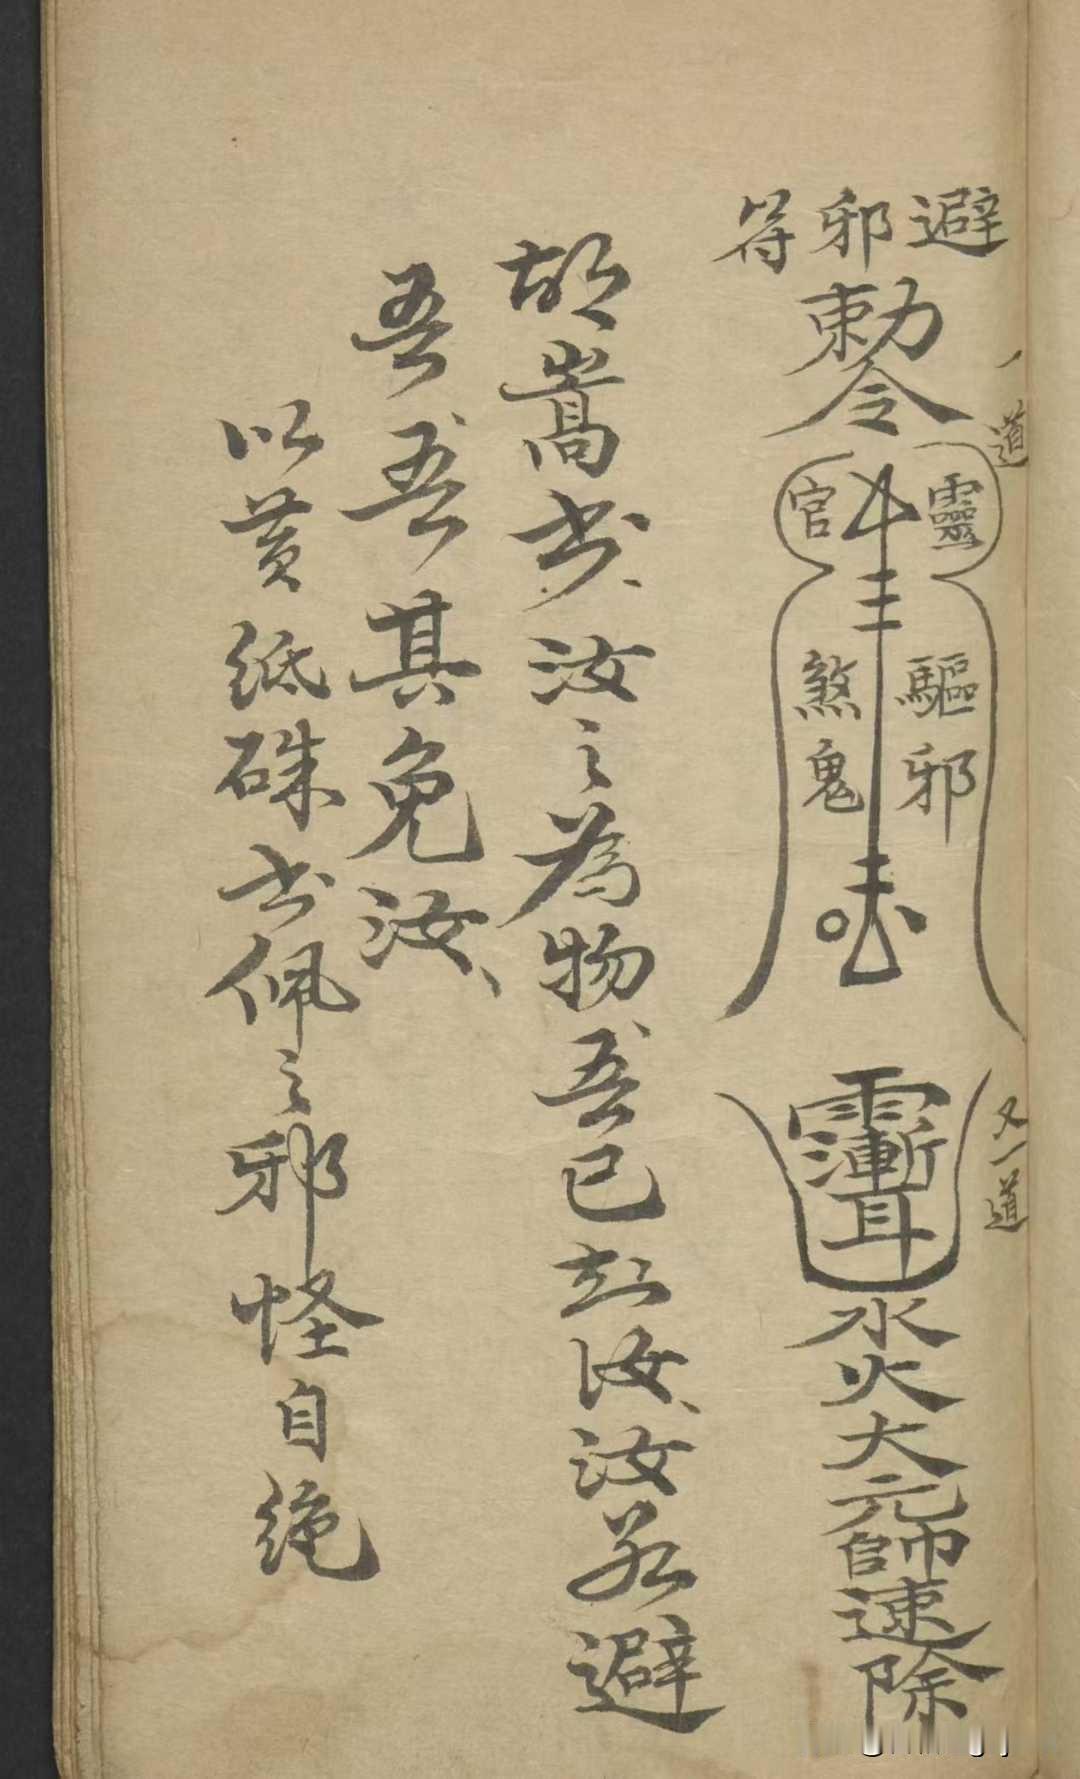 避邪符
一道
勅令
靈官
驅邪
煞鬼
又一道
水火大元帥速除
胡嵩书汝之為物吾已知汝汝若避
吾吾其免汝
以黄纸硃书佩之邪怪自绝